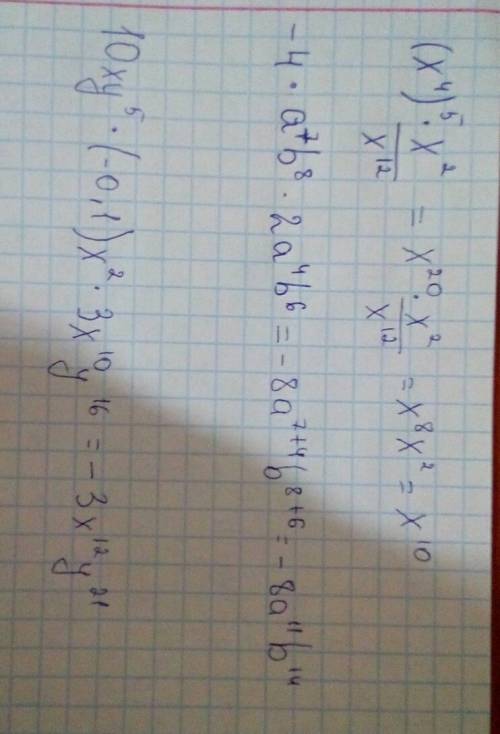 (x⁴)⁵ · x² / x¹² = x²⁰ · x² / x¹² = x⁸x² = x¹⁰
-4 · a⁷b⁸ · 2a⁴b⁶ = -8a⁷⁺⁴b⁸⁺⁶ = -8a¹¹b¹⁴
10xy⁵ · (-0,1)x² · 3x¹⁰y¹⁶ = -3x¹²y²¹